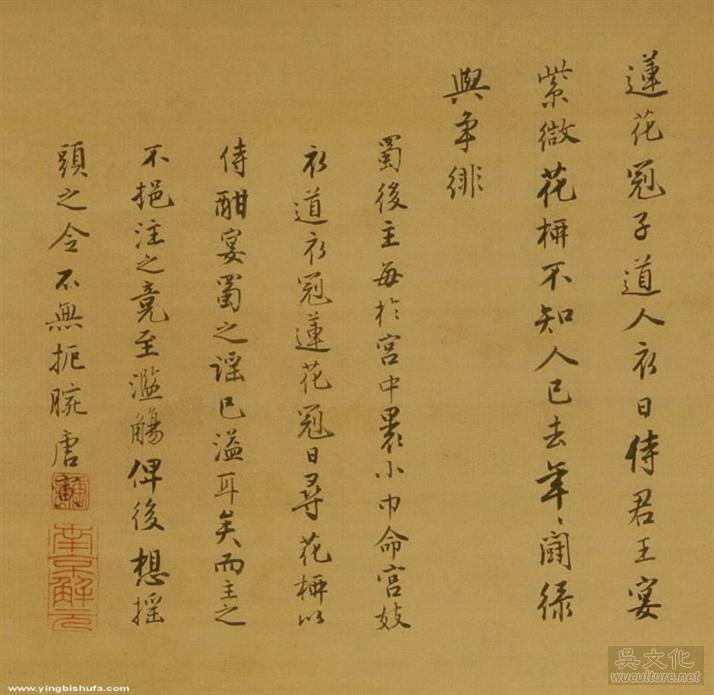 蓮花冠子道人衣日侍君王宴
紫微花柳不知人已去年、鬪綠
與爭緋
蜀後主每於宮中裹小巾命宮妓
衣道衣冠蓮花冠日尋花柳以
侍酣宴蜀之謠已溢耳矣而主之
不挹注之竟至濫觴俾後想摇
頭之令不無扼腕唐寅
南京解元
吳文化
wuculture.net
www.yingbishufa.com